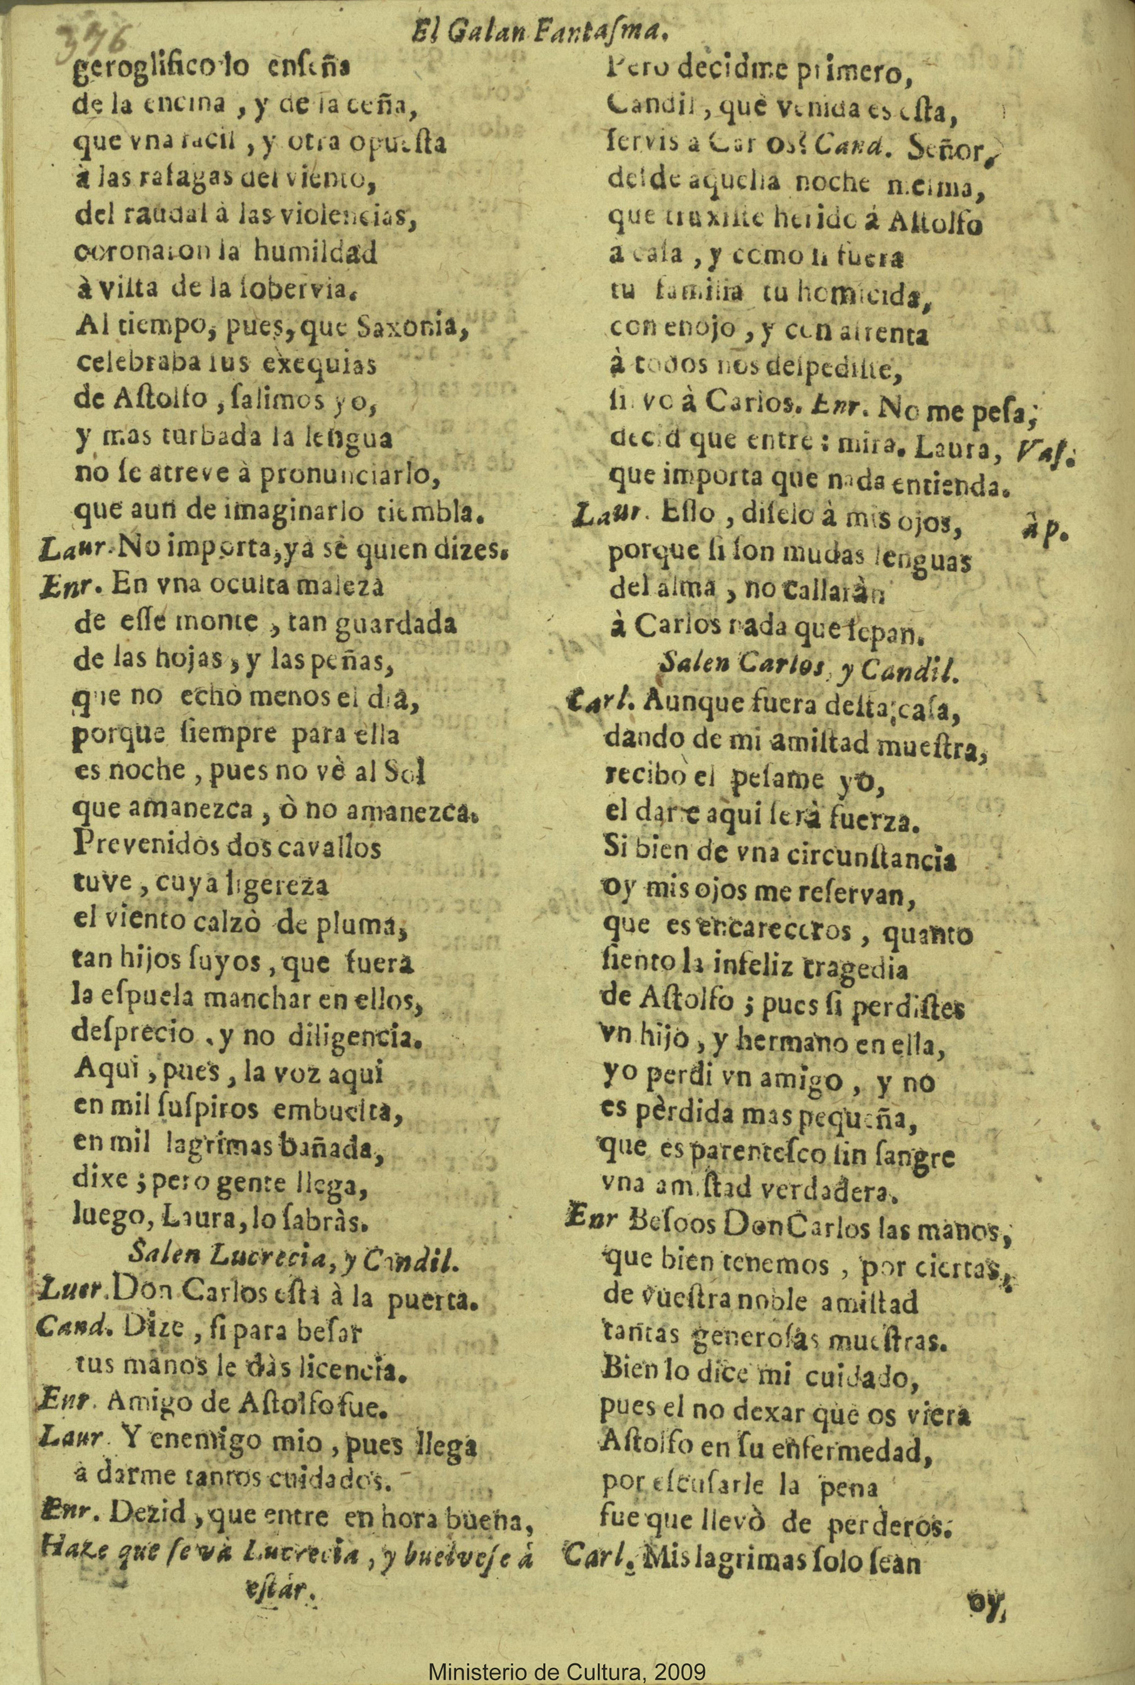 376
El Galan Fantaſma.
geroglifico lo enſeña
de la encina, y de la ceña,
que vna facil, y otra opueſta
à las rafagas del viento,
del raudal à las violencias,
coronaron la humildad
à viſta de la ſobervia.
Al tiempo, pues, que Saxonia,
celebraba ſus exequias
de Aſtolfo, ſalimos yo,
y mas turbada la lengua
no ſe atreve à pronunciarlo,
que aun de imaginarlo tiembla.
Laur. No importa, ya sè quien dizes.
Enr. En vna oculta maleza
de eſſe monte, tan guardada
de las hojas, y las peñas,
que no echò menos el dia,
porque ſiempre para ella
es noche, pues no vè al Sol
que amanezca, ò no amanezca.
Prevenidos dos cavallos
tuve, cuya ligereza
el viento calzò de pluma,
tan hijos ſuyos, que fuera
la eſpuela manchar en ellos,
deſprecio, y no diligencia.
Aqui, pues, la voz aqui
en mil ſuſpiros embuelta,
en mil lagrimas bañada,
dixe; pero gente llega,
luego, Laura, lo ſabràs.
Salen Lucrecia, y Candil.
Lucr. Don Carlos eſtà à la puerta.
Cand. Dize, ſi para beſar
tus manos le dàs licencia.
Enr. Amigo de Aſtolfo fue.
Laur. Y enemigo mio, pues llega
à darme tantos cuidados.
Enr. Dezid, que entre en hora buena,
Haze que ſe và Lucrecia, y buelveſe à
eſtàr.
Pero decidme primero,
Candil, què venida es eſta,
ſervis à Carlos? Cand. Señor,
deſde aquella noche meſma,
que truxiſte herido à Aſtolfo
a caſa, y como ſi fuera
tu familia tu homicida,
con enojo, y con afrenta
à todos nos deſpediſte,
ſirvo à Carlos. Enr. No me peſa;
decid que entre: mira, Laura, Vaſ.
que importa que nada entienda.
Laur. Eſſo, diſelo à mis ojos, àp.
porque ſi ſon mudas lenguas
del alma, no callaràn
à Carlos nada que ſepan.
Salen Carlos, y Candil.
Carl. Aunque fuera deſta caſa,
dando de mi amiſtad mueſtra,
recibo el peſame yo,
el darle aqui ſerà fuerza.
Si bien de vna circunſtancia
oy mis ojos me reſervan,
que es encareceros, quanto
ſiento la infeliz tragedia
de Aſtolfo; pues ſi perdiſtes
vn hijo, y hermano en ella,
yo perdi vn amigo, y no
es pèrdida mas pequeña,
que es parenteſco ſin ſangre
vna amiſtad verdadera.
Enr Beſoos Don Carlos las manos,
que bien tenemos, por ciertas,
de vueſtra noble amiſtad
tantas generoſas mueſtras.
Bien lo dice mi cuidado,
pues el no dexar que os viera
Aſtolfo en ſu enfermedad,
por eſcuſarle la pena
fue que llevò de perderos.
Carl. Mis lagrimas ſolo ſean
oy,
Ministerio de Cultura, 2009